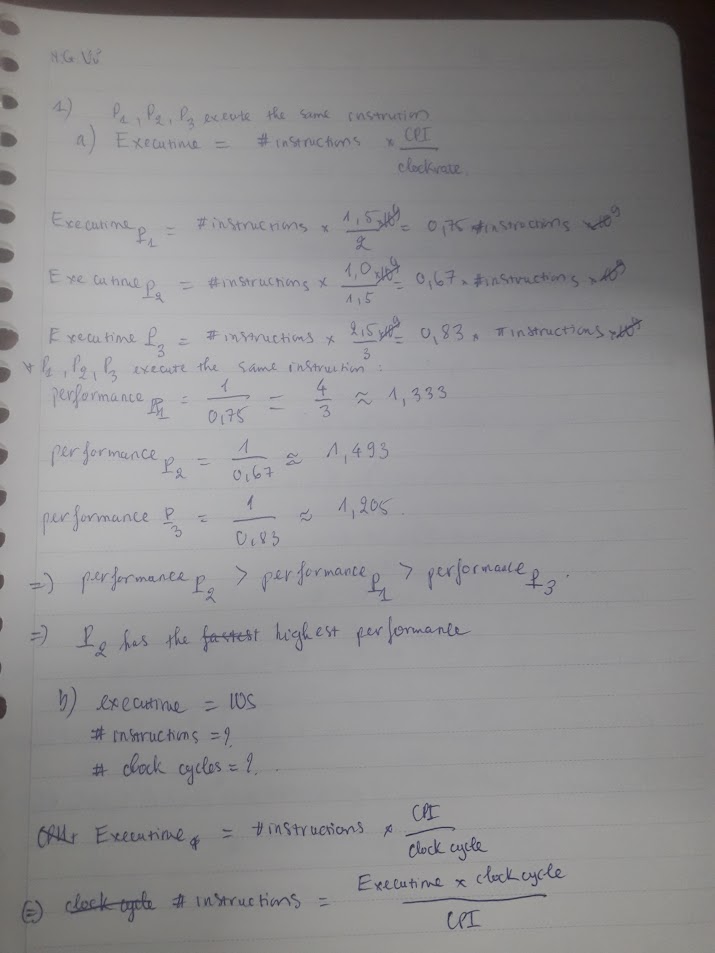 1) P1, P2, P3 execute the same instrution
a) Executime = # instructions × CPI / clockrate
Executime P1 = # instructions × 1,5 / 2 = 0,75 # instructions
Executime P2 = # instructions × 1,0 / 1,5 = 0,67 × # instructions
Executime P3 = # instructions × 2,5 / 3 = 0,83 × # instructions
P1, P2, P3 execute the same instruction :
performance P1 = 1 / 0,75 = 4 / 3 ≈ 1,333
performance P2 = 1 / 0,67 ≈ 1,493
performance P3 = 1 / 0,83 ≈ 1,205
=) performance P2 > performance P1 > performance P3.
=) P2 has the fastest highest performance
b) executime = 10S
# instructions = ?
# clock cycles = ?
Executime = # instructions × CPI / clock cycle
(=) clock cycle # instructions = Executime × clock cycle / CPI